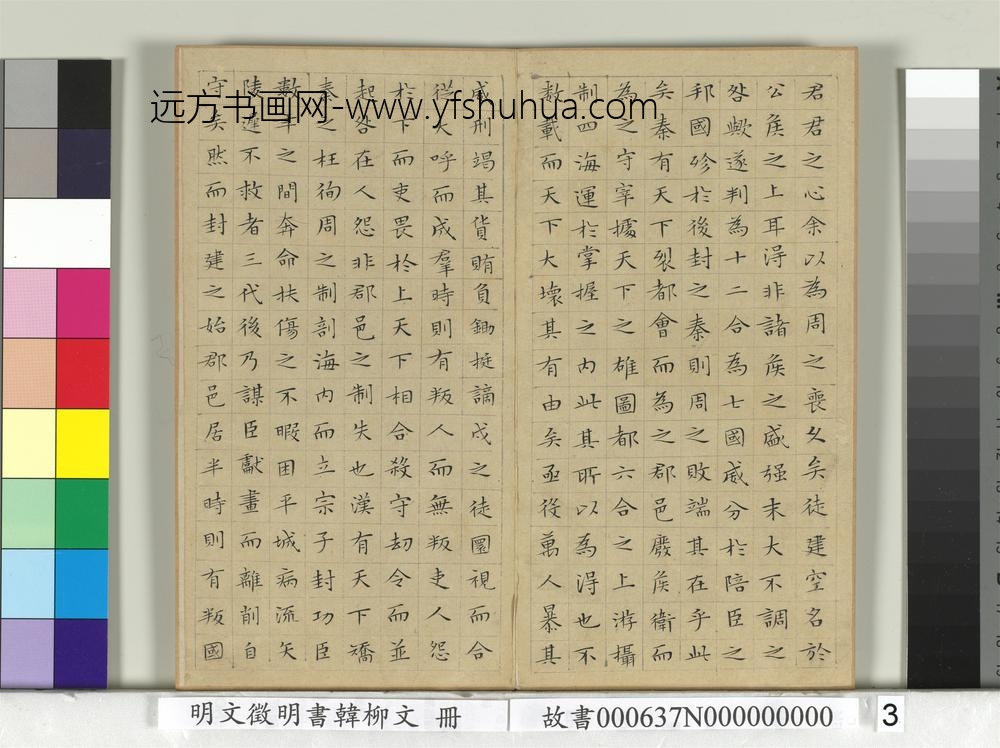 远方书画网-www.yfshuhua.com
君君之心余以為周之喪久矣徒建空名於
公侯之上耳得非諸侯之盛强末大不調之
咎歟遂判為十二合為七國威分於陪臣之
邦國殄於後封之秦則周之敗端其在乎此
矣秦有天下裂都會而為之郡邑廢侯衛而
為之守宰據天下之雄圖都六合之上游攝
制四海運於掌握之内此其所以為得也不
數載而天下大壞其有由矣亟役萬人暴其
威刑竭其貨賄負鋤梃謫戍之徒圜視而合
從大呼而成羣時則有叛人而無叛吏人怨
於下而吏畏於上天下相合殺守劫令而並
起咎在人怨非郡邑之制失也漢有天下矯
秦之枉徇周之制剖海内而立宗子封功臣
數年之間奔命扶傷之不暇困平城病流矢
陵遲不救者三代後乃謀臣獻畫而離削自
守矣然而封建之始郡邑居半時則有叛國
明文徵明書韓柳文 冊
故書000637N000000000
3